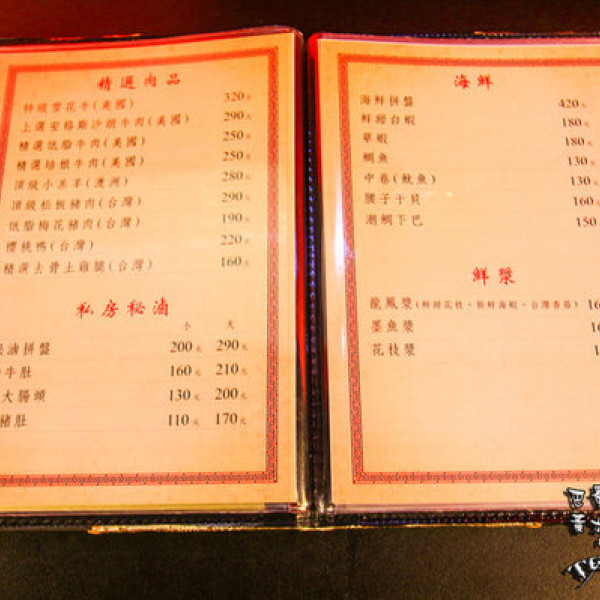 精選肉品
特級雪花牛(美國) 320元
上選安格斯沙朗牛肉(美國) 290元
精選低脂牛肉(美國) 250元
精選培根牛肉(美國) 250元
頂級小羔羊(澳洲) 280元
頂級松板豬肉(台灣) 290元
低脂梅花豬肉(台灣) 190元
櫻桃鴨(台灣) 220元
精選去骨土雞腿(台灣) 160元
私房秘滷
小 大
滷拼盤 200元 290元
牛肚 160元 210元
大腸頭 130元 200元
豬肚 110元 170元
海鮮
海鮮拼盤 420元
鮮甜白蝦 180元
草蝦 180元
鯛魚 130元
中卷(魷魚) 130元
腰子干貝 160元
潮鯛下巴 150
鮮漿
龍鳳漿(鮮甜花枝、新鮮海蝦、台灣香菇)
墨魚漿
花枝漿